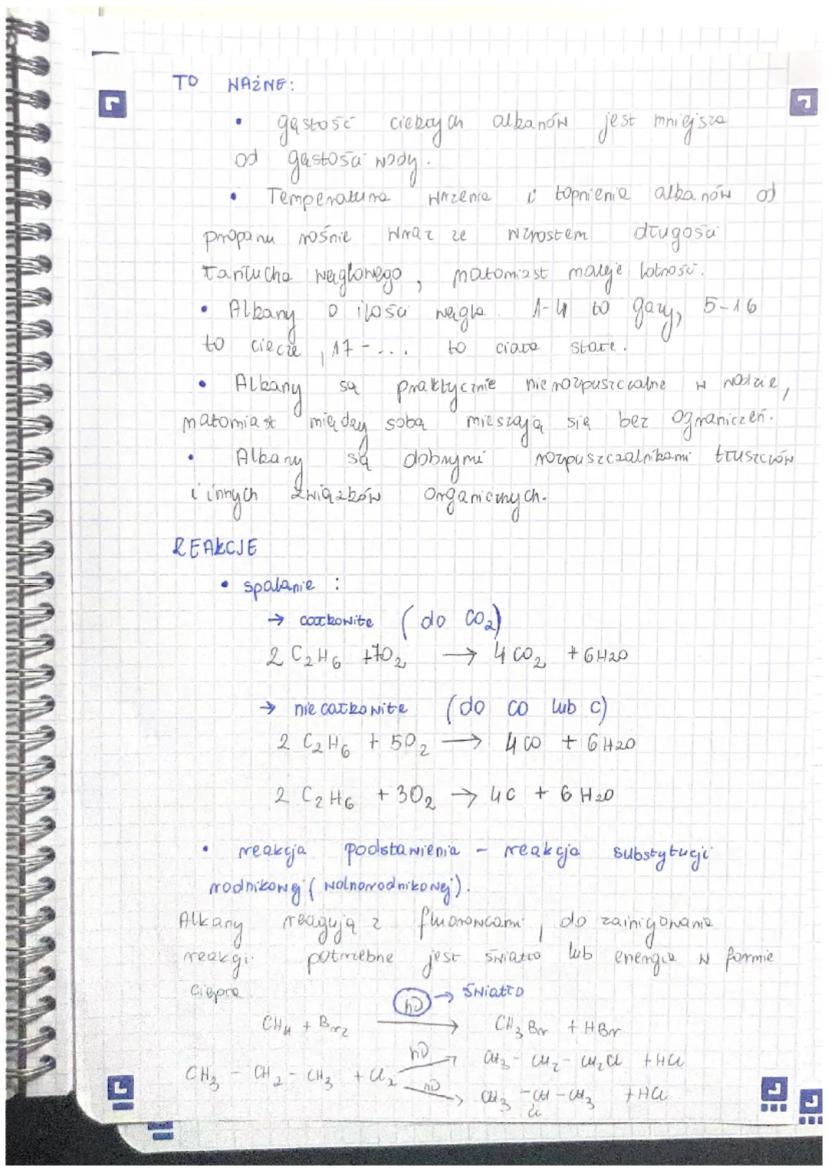 TO WAŻNE:
• gęstość ciekłych alkanów jest mniejsza
od gęstości wody.
• Temperatura wrzenia i topnienia alkanów od
propanu rośnie wraz ze wzrostem długości
łańcucha węglowego, natomiast maleje lotność.
• Alkany o ilości węgla 1-4 to gazy, 5-16
to ciecze, 17-... to ciała stałe.
• Alkany są praktycznie nierozpuszczalne w wodzie,
natomiast między sobą mieszają się bez ograniczeń.
• Alkany są dobrymi rozpuszczalnikami tłuszczów
i innych związków organicznych.
REAKCJE
• spalanie :
→ całkowite (do CO₂)
2 C₂H₆ +7O₂ → 4 CO₂ + 6H2O
→ niecałkowite (do CO lub C)
2 C₂H₆ + 5O₂ → 4CO + 6H2O
2 C₂H₆ + 3O₂ → 4C + 6 H2O
• reakcja podstawienia - reakcja substytucji
rodnikowej (wolnorodnikowej).
Alkany reagują z fluorowcami, do zainicjowania
reakcji potrzebne jest światło lub energia w formie
ciepła
hν → ŚWIATŁO
CH₄ + Br₂ → CH₃Br + HBr
CH₃ - CH₂ - CH₃ + Cl₂ hν → CH₃ - CH₂ - CH₂Cl + HCl
hν → CH₃ - CH - CH₃ + HCl
Cl